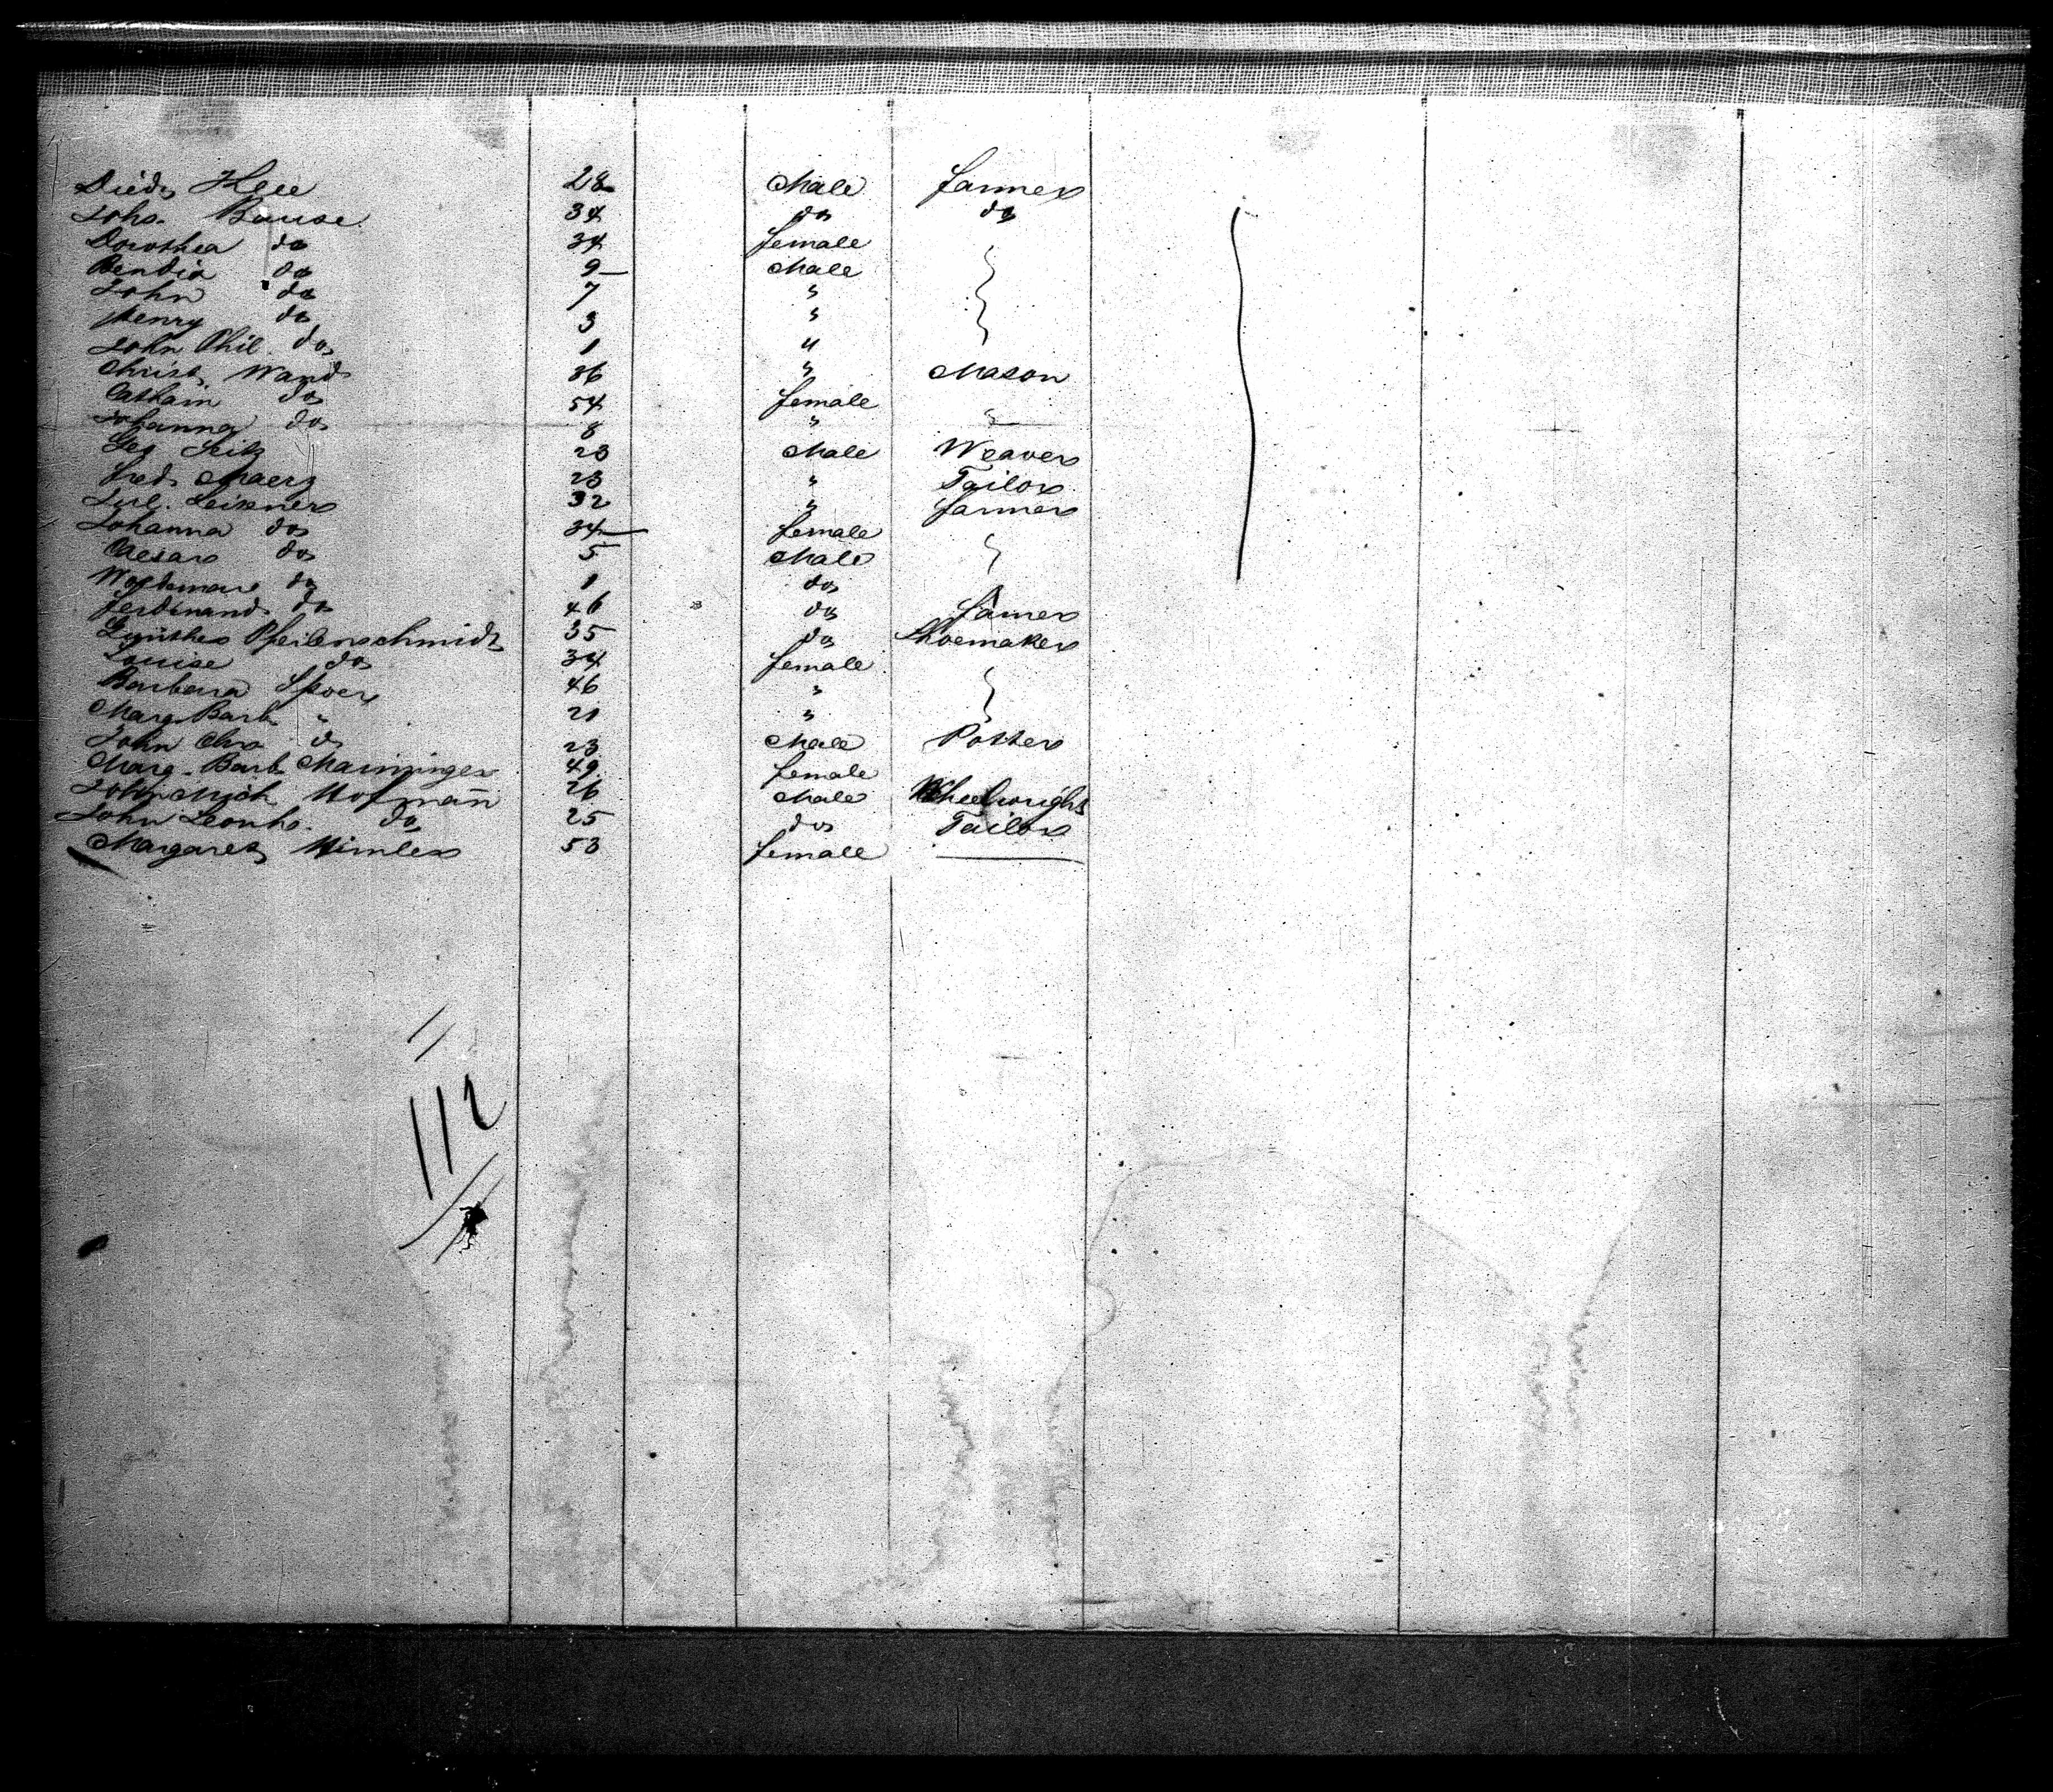 Died. Hee 28 Male farmer
Johs. Bause 34 do do
Dorothea do 34 female
Bendix do 9 Male
John do 7 "
Henry do 3 "
John Phil. do 1 "
Christ. Wand 36 " Mason
Cathain do 54 female "
Johanna do 8 "
Geo Seitz 23 Male Weaver
Fred. Maerz 23 " Tailor
Jul. Leixner 32 " farmer
Johanna do 34 female
Caesar do 5 Male
Woldemar do 1 do
Ferdinand do 46 do farmer
Günther Pfeilenschmidt 35 do Shoemaker
Louise do 34 female
Barbara Spoer 46 "
Marg. Barb. " 21 "
John Chr. d 23 Male Potter
Marg. Barb. Maininger 49 female
John Mich Hofman̄ 26 Male Wheelwright
John Leonh. do 25 do Tailor
Margaret Himler 53 female
112